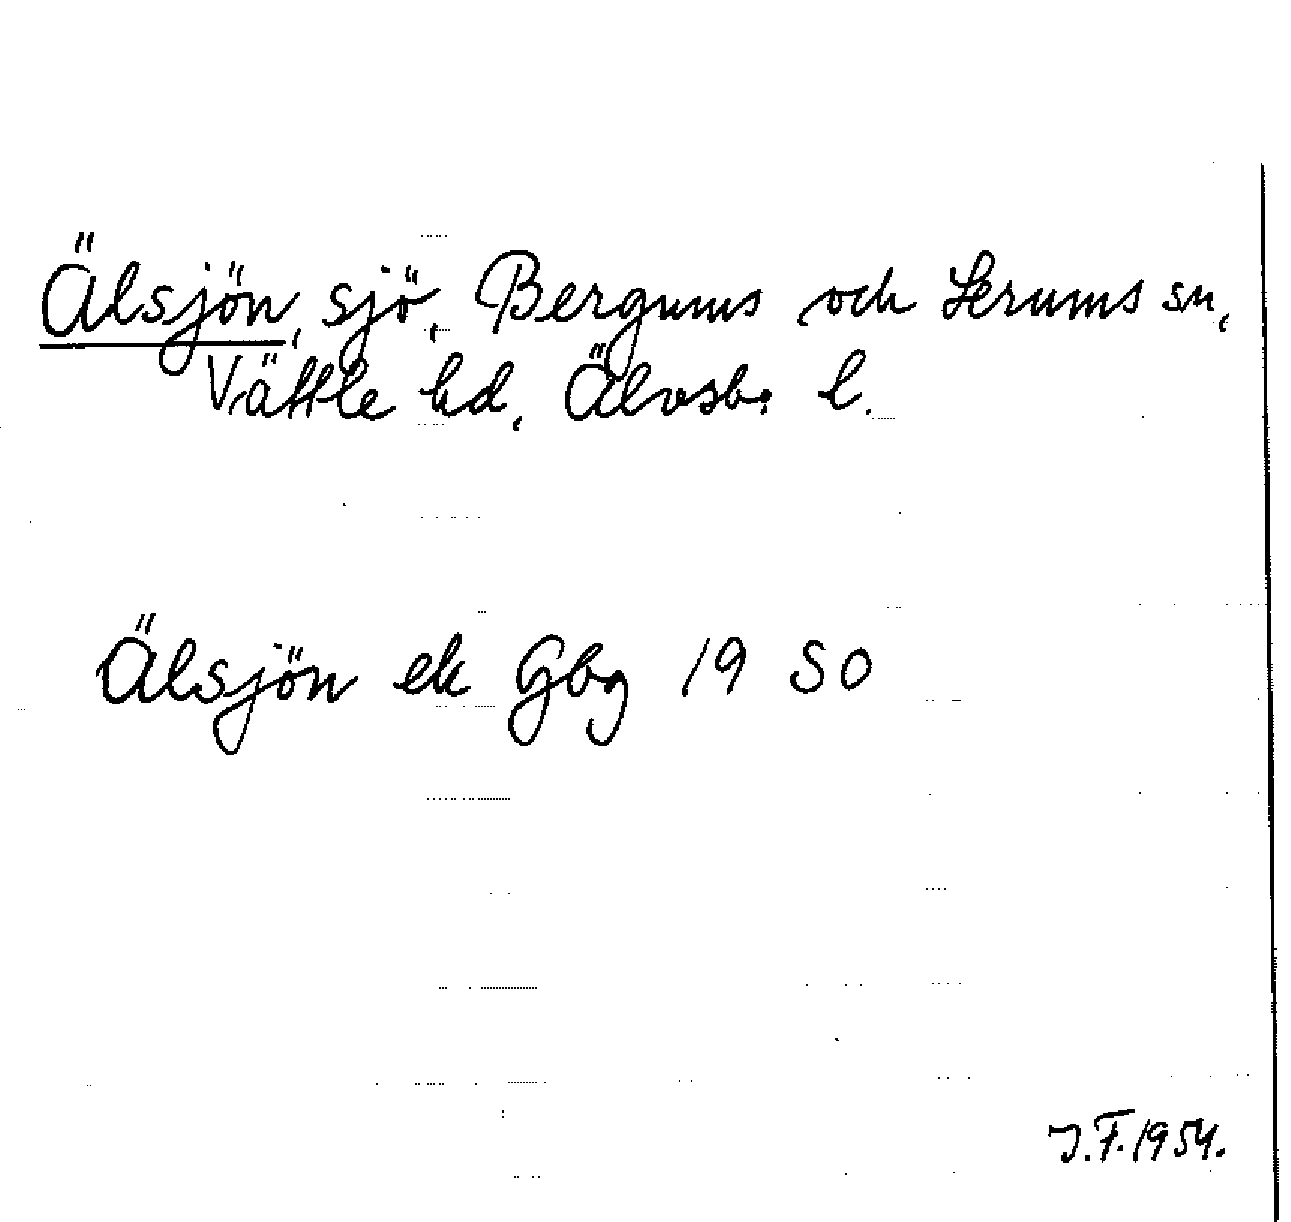 Älsjön, sjö, Bergums och Lerums sn,
Vättle hd, Älvsb. l.
Älsjön ek Gbg 19 SO
J.F. 1954.